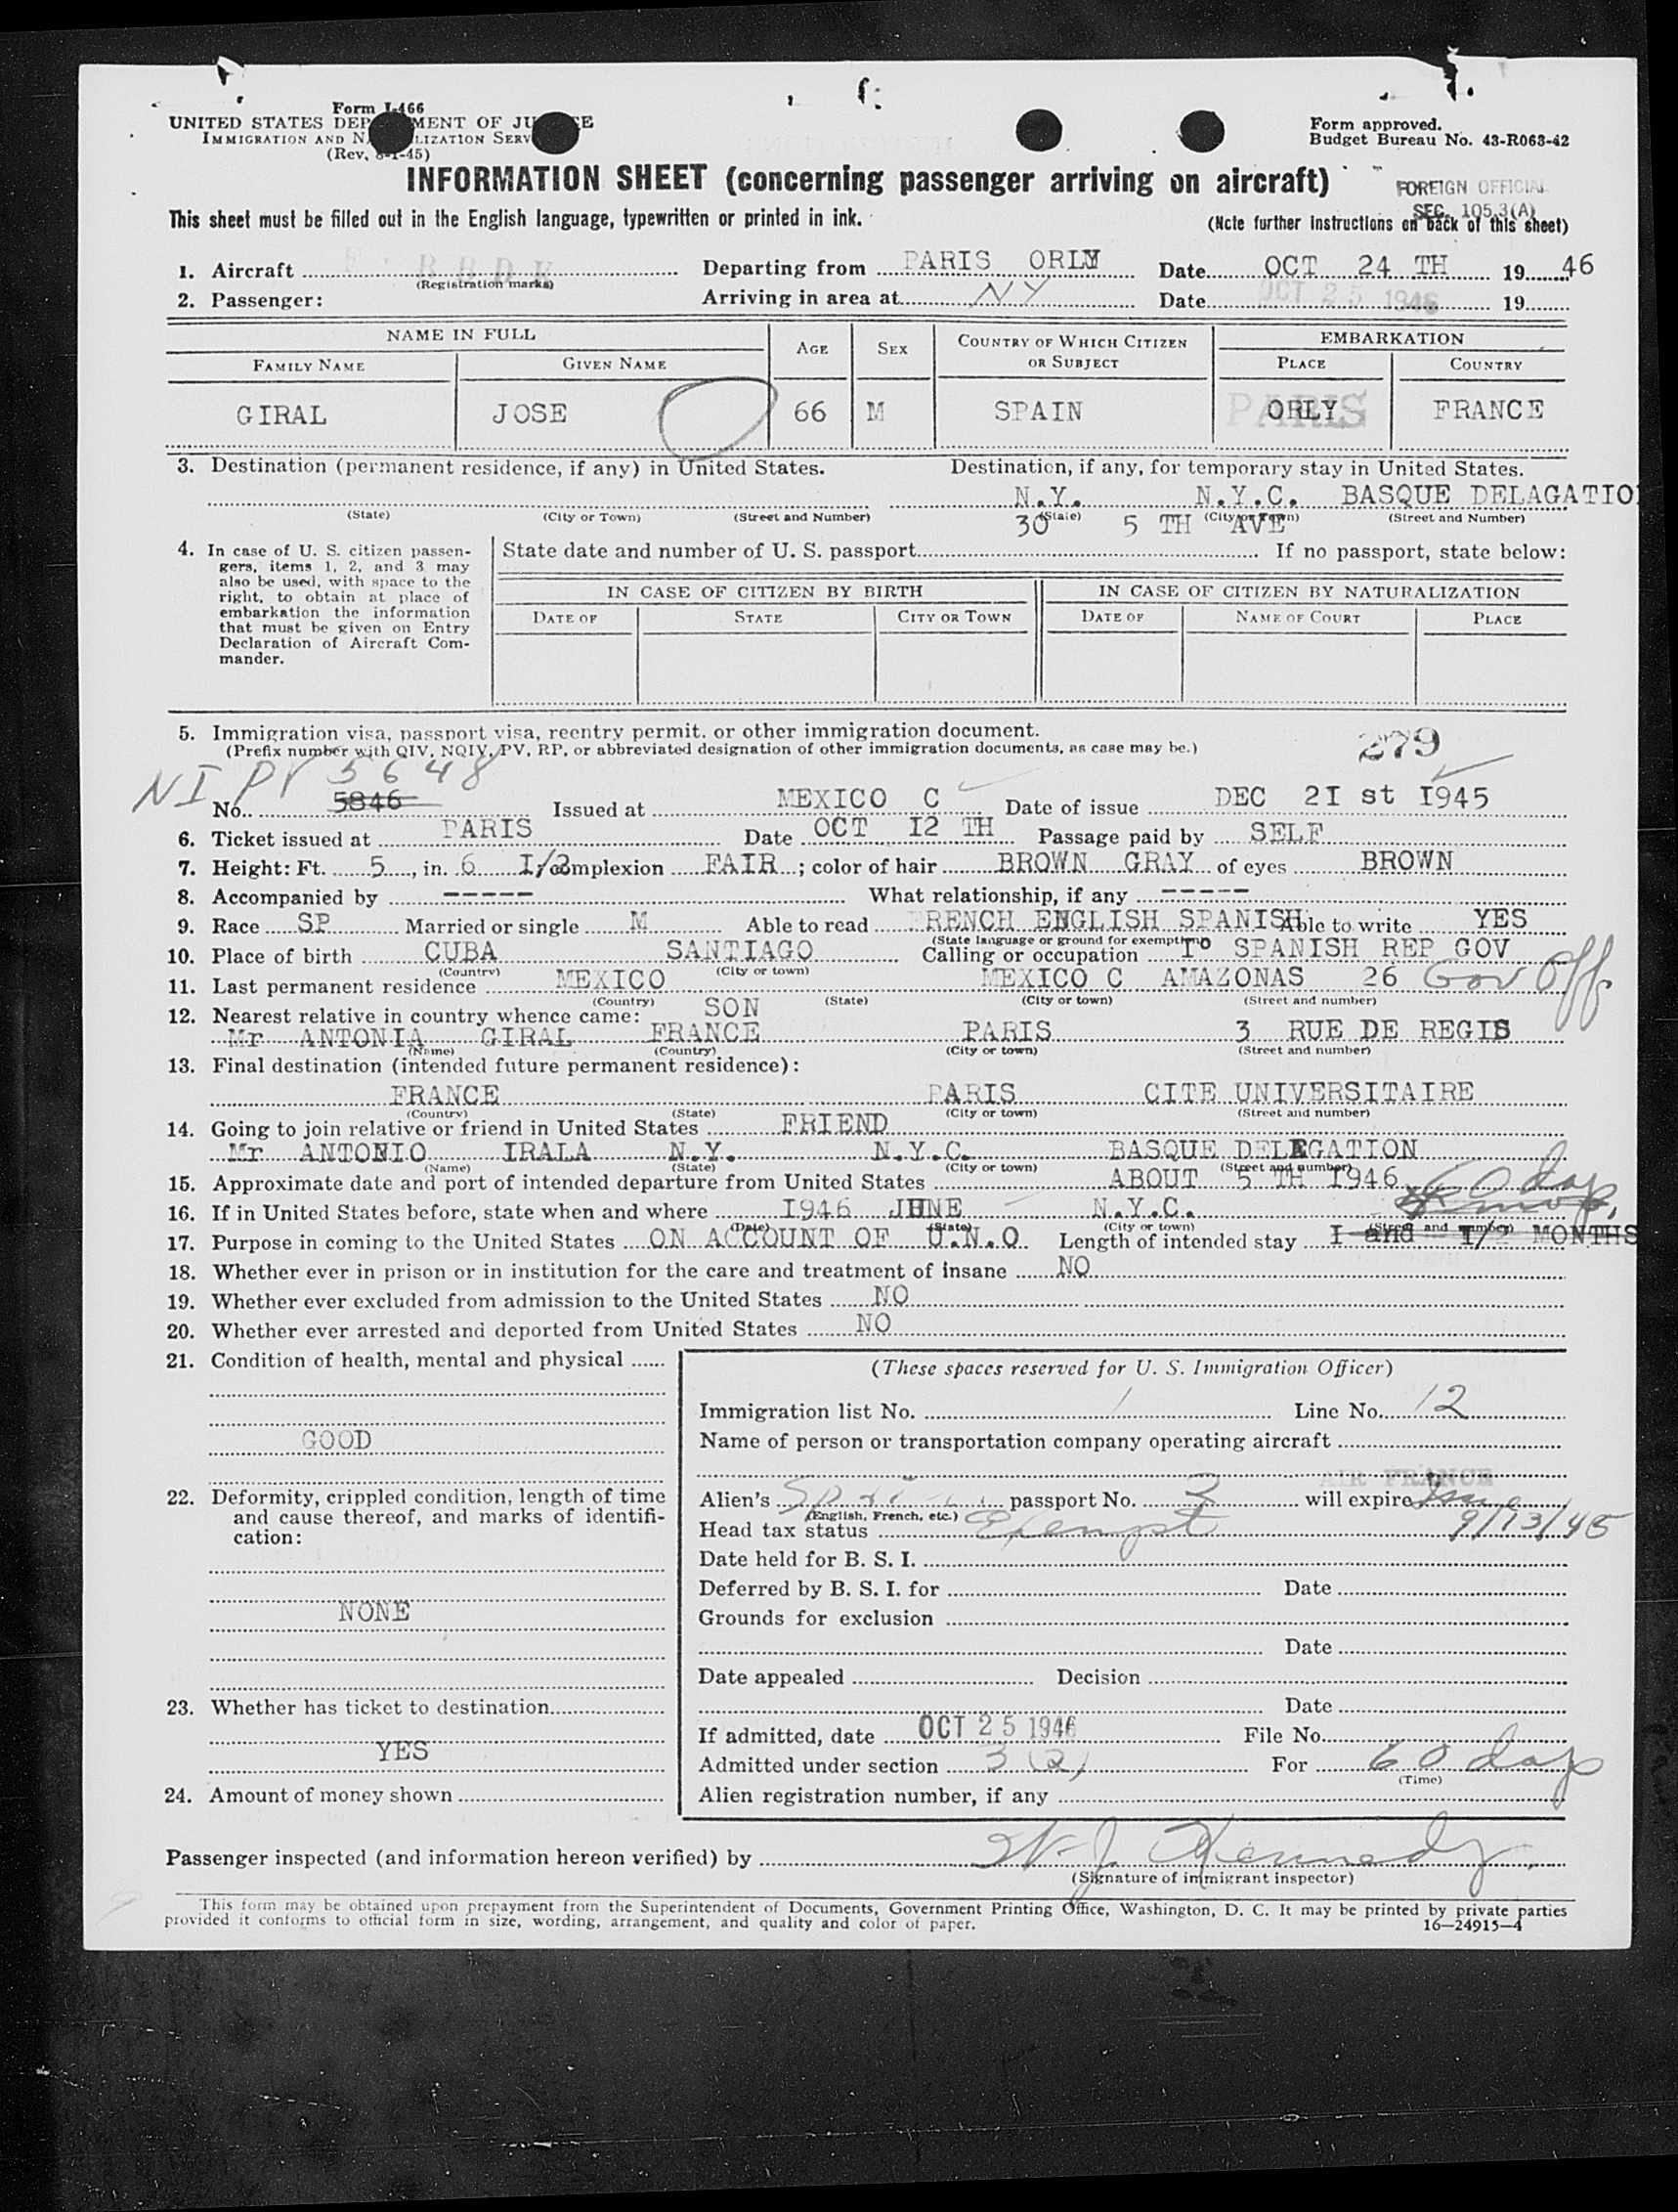 Form I-466
UNITED STATES DEPARTMENT OF JUSTICE
IMMIGRATION AND NATURALIZATION SERVICE
(Rev. 8-1-45)
Form approved.
Budget Bureau No. 43-R063-42
INFORMATION SHEET (concerning passenger arriving on aircraft)
FOREIGN OFFICIAL
SEC. 105.3(A)
This sheet must be filled out in the English language, typewritten or printed in ink.
(Note further instructions on back of this sheet)
1. Aircraft (Registration marks) Departing from PARIS ORLY Date OCT 24 TH 1946
2. Passenger: Arriving in area at NY Date OCT 25 1946 19
NAME IN FULL AGE SEX COUNTRY OF WHICH CITIZEN OR SUBJECT EMBARKATION
FAMILY NAME GIVEN NAME PLACE COUNTRY
GIRAL JOSE 66 M SPAIN PARIS ORLY FRANCE
3. Destination (permanent residence, if any) in United States. Destination, if any, for temporary stay in United States.
N.Y. N.Y.C. BASQUE DELAGATIO
(State) (City or Town) (Street and Number) (State) (City or Town) (Street and Number)
30 5 TH AVE
4. In case of U. S. citizen passengers, items 1, 2, and 3 may also be used, with space to the right, to obtain at place of embarkation the information that must be given on Entry Declaration of Aircraft Commander.
State date and number of U. S. passport If no passport, state below:
IN CASE OF CITIZEN BY BIRTH IN CASE OF CITIZEN BY NATURALIZATION
DATE OF STATE CITY OR TOWN DATE OF NAME OF COURT PLACE
5. Immigration visa, passport visa, reentry permit, or other immigration document.
(Prefix number with QIV, NQIV, PV, RP, or abbreviated designation of other immigration documents, as case may be.)
279
NI PV 5648
No. 5846 Issued at MEXICO C Date of issue DEC 2I st I945
6. Ticket issued at PARIS Date OCT I2 TH Passage paid by SELF
7. Height: Ft. 5, in. 6 I/2 Complexion FAIR; color of hair BROWN GRAY of eyes BROWN
8. Accompanied by ----- What relationship, if any -----
9. Race SP Married or single M Able to read FRENCH ENGLISH SPANISH Able to write YES
(State language or ground for exemption)
10. Place of birth CUBA SANTIAGO Calling or occupation SPANISH REP GOV
(Country) (City or town)
Gov Off
11. Last permanent residence MEXICO MEXICO C AMAZONAS 26
(Country) (State) (City or town) (Street and number)
12. Nearest relative in country whence came: SON
Mr ANTONIA GIRAL FRANCE PARIS 3 RUE DE REGIS
(Name) (Country) (City or town) (Street and number)
13. Final destination (intended future permanent residence):
FRANCE PARIS CITE UNIVERSITAIRE
(Country) (State) (City or town) (Street and number)
14. Going to join relative or friend in United States FRIEND
Mr ANTONIO IRALA N.Y. N.Y.C. BASQUE DELEGATION
(Name) (State) (City or town) (Street and number)
15. Approximate date and port of intended departure from United States ABOUT 5 TH I946 60 days
16. If in United States before, state when and where I946 JUNE N.Y.C.
(Date) (State) (City or town) (Street and number)
17. Purpose in coming to the United States ON ACCOUNT OF U.N.O Length of intended stay I and I/2 MONTHS
18. Whether ever in prison or in institution for the care and treatment of insane NO
19. Whether ever excluded from admission to the United States NO
20. Whether ever arrested and deported from United States NO
21. Condition of health, mental and physical
GOOD
22. Deformity, crippled condition, length of time and cause thereof, and marks of identification:
NONE
23. Whether has ticket to destination
YES
24. Amount of money shown
(These spaces reserved for U. S. Immigration Officer)
Immigration list No. 1 Line No. 12
Name of person or transportation company operating aircraft
AIR FRANCE
Alien's passport No. 3 will expire
(English, French, etc.)
Head tax status Exempt 9/13/45
Date held for B. S. I.
Deferred by B. S. I. for Date
Grounds for exclusion
Date
Date appealed Decision
Date
If admitted, date OCT 25 1946 File No.
Admitted under section 3(2) For 60 days
(Time)
Alien registration number, if any
Passenger inspected (and information hereon verified) by W. J. Kennedy
(Signature of immigrant inspector)
This form may be obtained upon prepayment from the Superintendent of Documents, Government Printing Office, Washington, D. C. It may be printed by private parties
provided it conforms to official form in size, wording, arrangement, and quality and color of paper. 16—24915-4